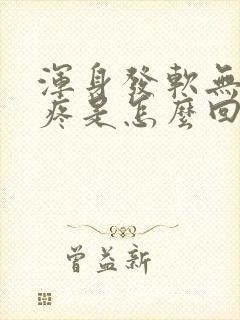 渾身發軟無
疼是怎麼回
曾益新